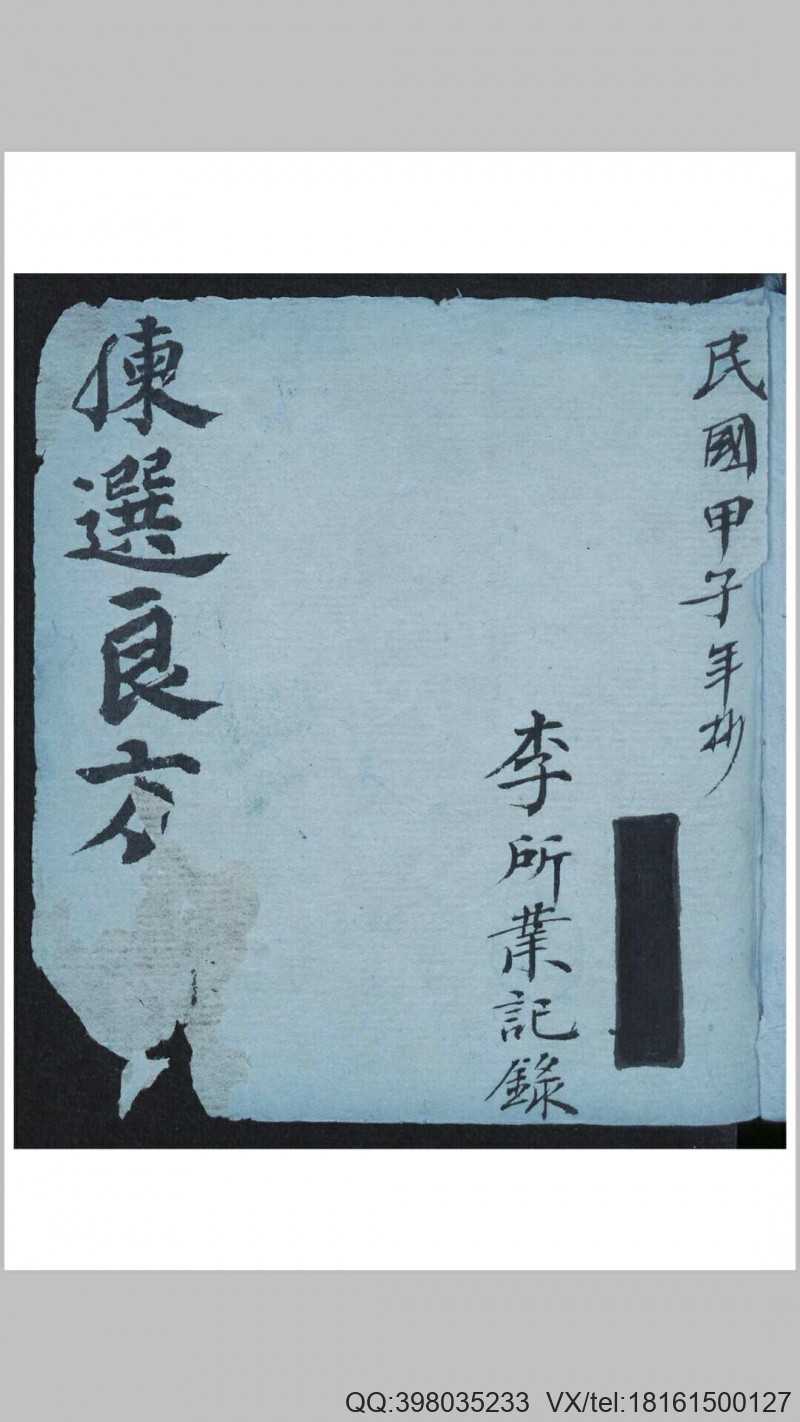 民國甲子年抄
李所業記錄
揀選良方
QQ:398035233 VX/tel:18161500127